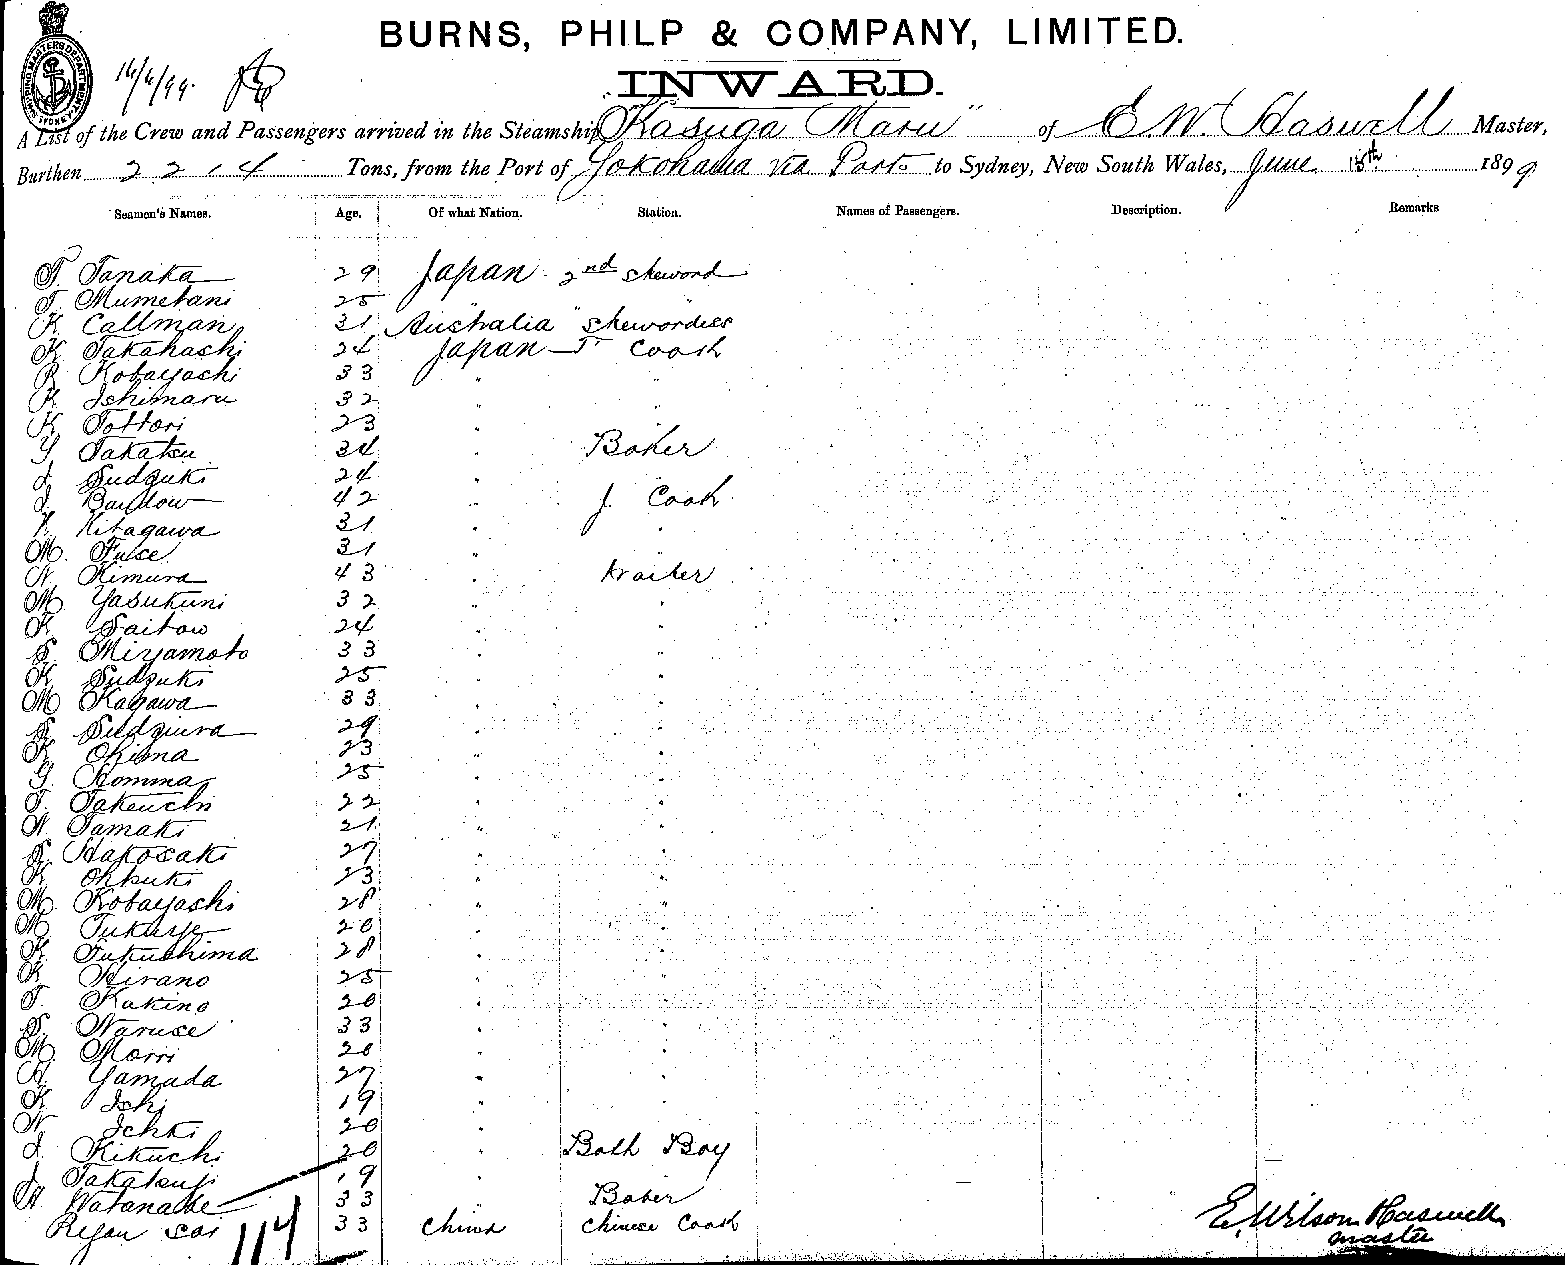 BURNS, PHILP & COMPANY, LIMITED.
INWARD.
16/6/99.
A List of the Crew and Passengers arrived in the Steamship "Kasuga Maru" of E. W. Haswell Master,
Burthen 2214 Tons, from the Port of Yokohama via Ports to Sydney, New South Wales, June 15th 1899
Seamen's Names. Age. Of what Nation. Station. Names of Passengers. Description. Remarks
T. Tanaka 29 Japan 2nd steword
T. Mumetani 25 " "
K. Callman 31 Australia stewordess
K. Takahashi 24 Japan 1st Coosk
R. Kobayashi 33 " "
K. Ishimaru 32 " "
K. Tottori 23 "
Y. Takatsu 34 " Baker
I. Sudzuki 24 "
I. Bandow 42 " J. Cook
K. Kitagawa 31 " "
M. Fuse 31 " "
N. Kimura 43 " Waiter
M. Yasukuni 32 " "
K. Saitow 24 " "
S. Miyamoto 33 " "
K. Sudzuki 25 " "
M. Kagawa 33 " "
S. Sudziura 29 " "
K. Ohima 23 " "
G. Homma 25 " "
T. Takeuchi 22 " "
N. Tamaki 21 " "
S. Hakosaki 27 " "
K. Ohkuki 23 " "
M. Kobayashi 28 " "
M. 20 " "
K. Fukushima 28 " "
K. Hirano 25 " "
T. Kakino 20 " "
S. Naruse 33 " "
M. Morri 20 " "
H. Yamada 27 " "
K. Ishi 19 " "
N. Ichki 20 "
I. Kikuchi 20 " Bath Boy
I. Takatsuji 19 "
H. Watanabe 33 Baber
Rejau Sai 33 China Chinese Coosk
114
E. Wilson Haswell
master